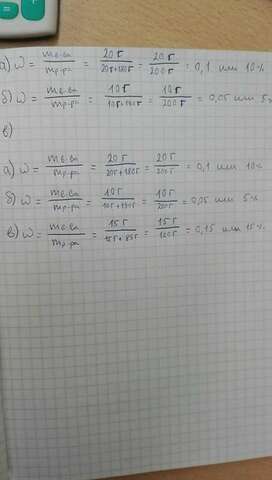 а) ω = mв.ва / mр-ра = 20г / 20г+180г = 20г / 200г = 0,1 или 10%
б) ω = mв.ва / mр-ра = 10г / 10г+190г = 10г / 200г = 0,05 или 5%
в)
а) ω = mв.ва / mр-ра = 20г / 20г+180г = 20г / 200г = 0,1 или 10%
б) ω = mв.ва / mр-ра = 10г / 10г+190г = 10г / 200г = 0,05 или 5%
в) ω = mв.ва / mр-ра = 15г / 15г+85г = 15г / 120г = 0,15 или 15%